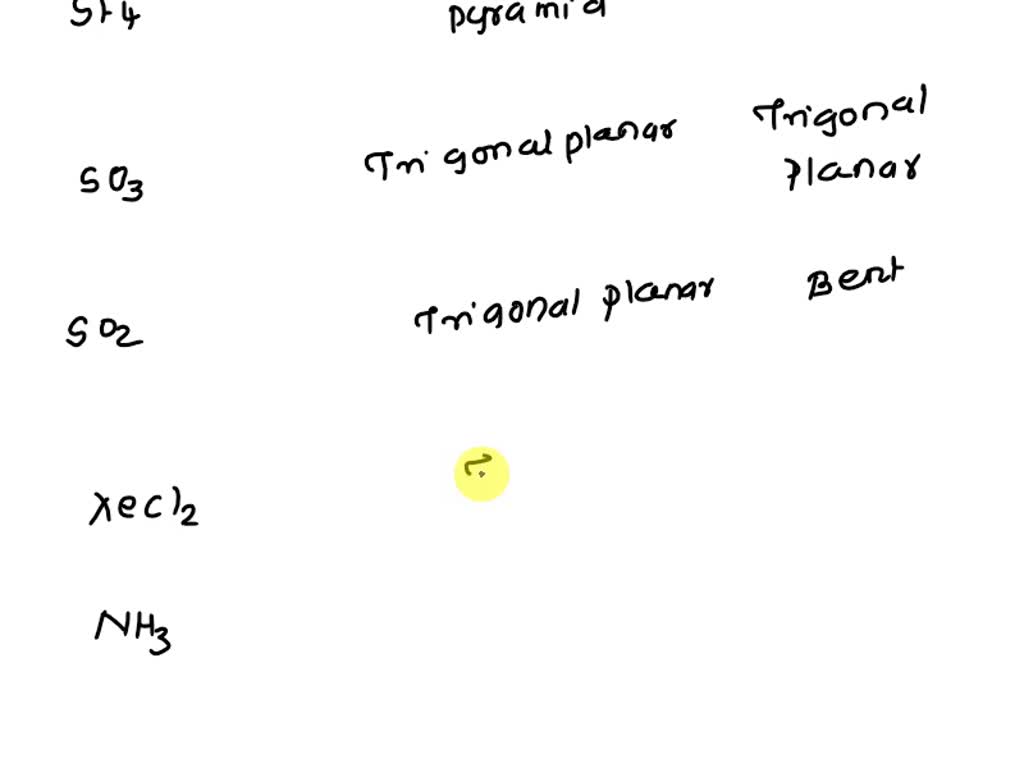 SF4 pyramid
SO3 Trigonal planar Trigonal planar
SO2 Trigonal planar Bent
XeCl2
NH3